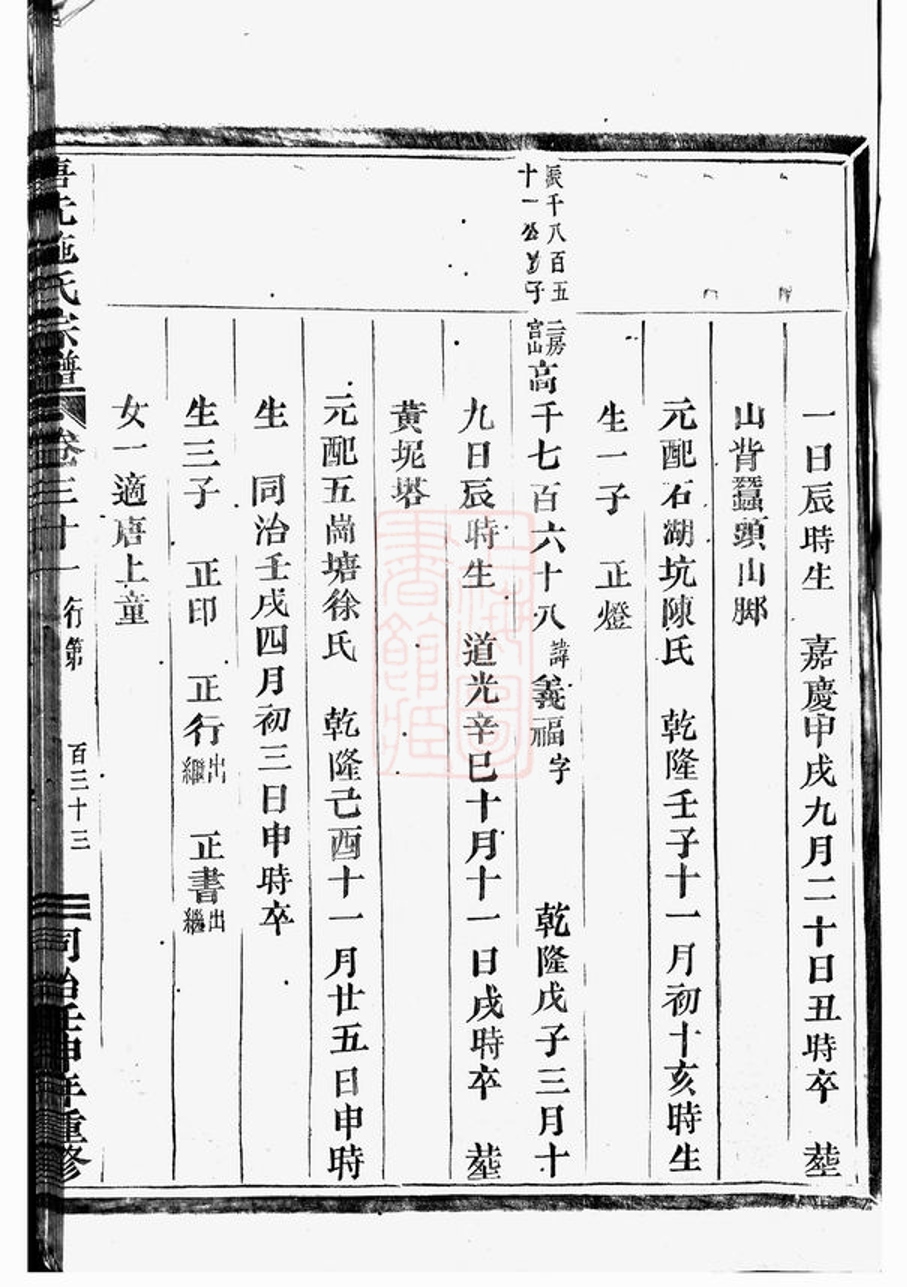 一日辰時生　嘉慶甲戌九月二十日丑時卒　塟
山背蠶頭山脚
元配石湖坑陳氏　乾隆壬子十一月初十亥時生
生一子　正燈
振千八百五
十一公子
二房
宫山
高千七百六十八諱義福字　乾隆戊子三月十
九日辰時生　道光辛巳十月十一日戌時卒　塟
黄坭塔
元配五崗塘徐氏　乾隆己酉十一月廿五日申時
生　同治壬戌四月初三日申時卒
生三子　正印　正行出繼　正書出繼
女一適唐上童
施氏宗譜　卷三十一　行第　百三十三　同治壬申年重修